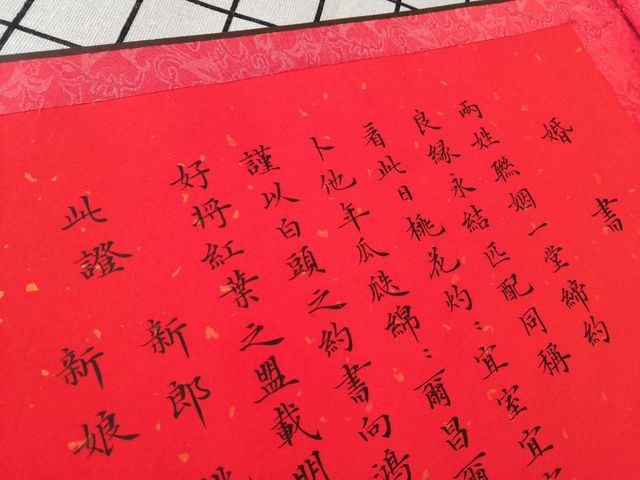 婚書
兩姓聯姻一堂締約
良緣永結匹配同稱
看此日桃花灼：宜室宜
卜他年瓜瓞綿：爾昌爾
謹以白頭之約書向鴻
好將紅葉之盟載明
此證 新郎
新娘